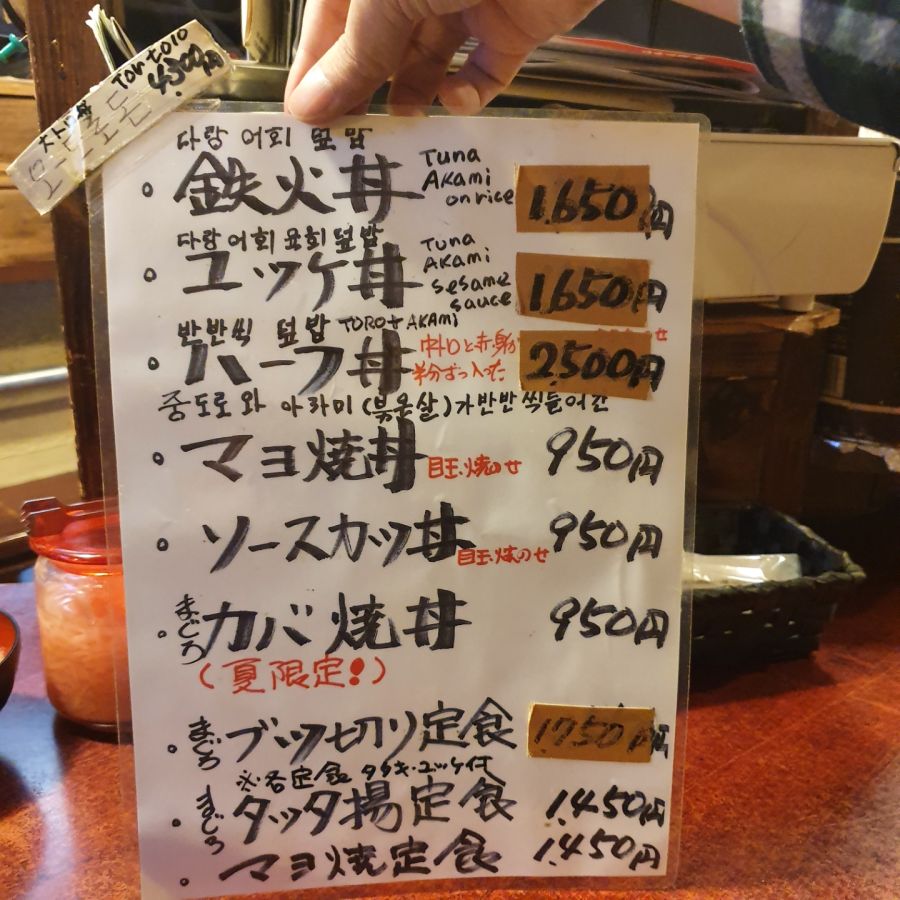 Tontoro
4,300円
다랑 어회 덮밥
鉄火丼 Tuna AKami on rice 1.650円
다랑어회 육회 덮밥
ユッケ丼 Tuna AKami sesame sauce 1.650円
반반씩 덮밥 TORO+AKAMi
ハーフ丼 中トロと赤身が半分ずつ入った 2.500円
중도로와 아카미 (붉은살)가반반씩들어간
マヨ焼丼 目玉焼のせ 950円
ソースカツ丼 目玉焼のせ 950円
まぐろカバ焼丼 950円
(夏限定!)
まぐろブツ切り定食 1.750円
※各定食 タタキ・ユッケ付
まぐろタッタ揚定食 1.450円
マヨ焼定食 1.450円